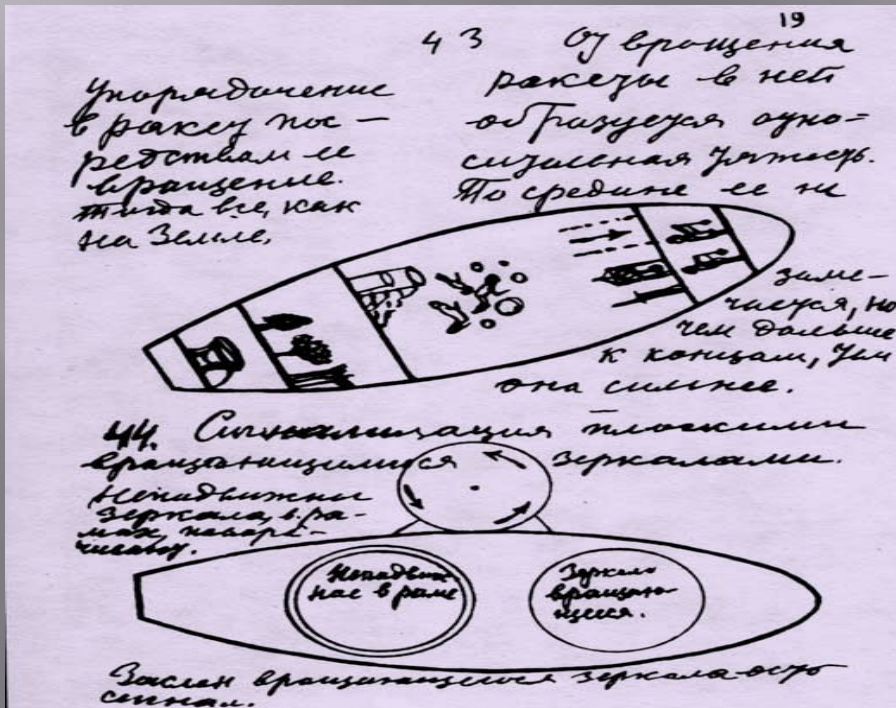 19
43
Упорядочение
в ракету пос-
редствам ее
вращение.
тогда все, как
на Земле.
От вращения
ракеты в ней
образуется отно-
сительная тяжесть.
По средине ее не
заме-
чается, но
чем дальше
к концам, тем
она сильнее.
44. Сигнализация плоскими
вращающимися зеркалами.
Неподвижны
зеркала, в ра-
мах,
Неподвиж
ное в раме
Зеркало
вращаю-
щееся.
Заслон вращающегося зеркала есть
сигнал.